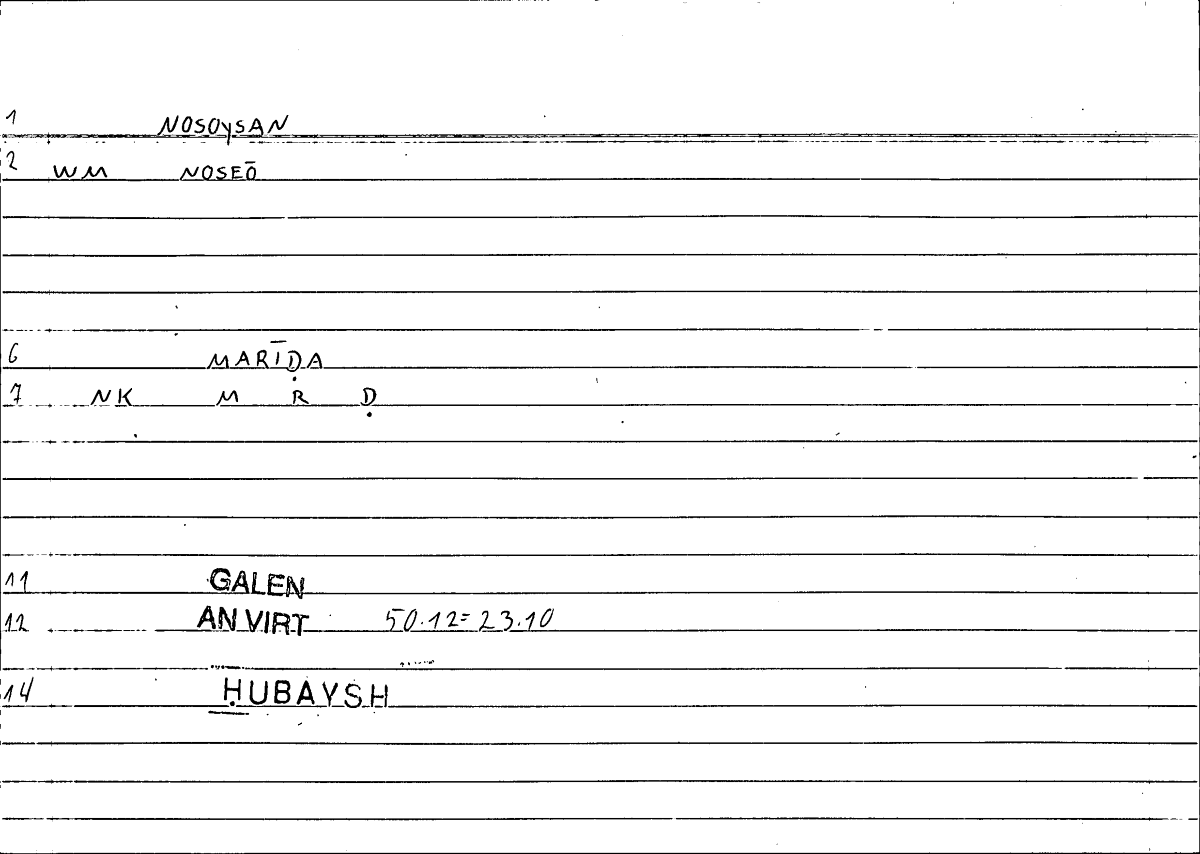 1 NOSOySAN
2 WM NOSEŌ
6 MARĪḌA
7 NK M R Ḍ
11 GALEN
12 AN VIRT 50.12=23.10
14 ḤUBAYSH